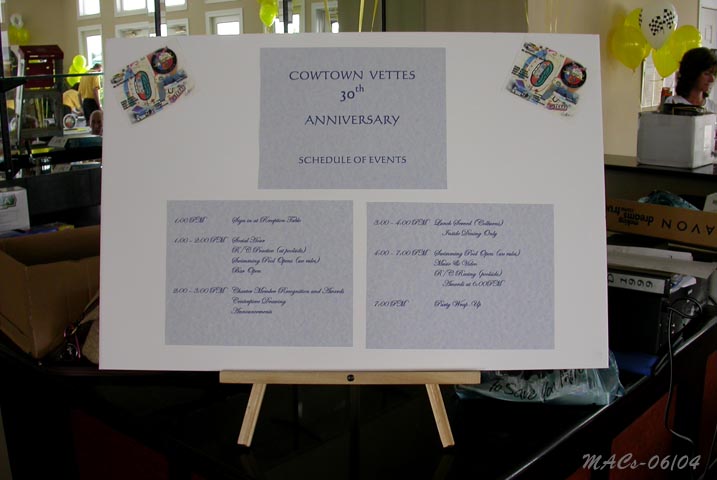 COWTOWN VETTES
30th
ANNIVERSARY
SCHEDULE OF EVENTS
1:00 PM Sign in at Reception Table
1:00 - 2:00 PM Social Hour
R/C Practice (at poolside)
Swimming Pool Opens (see rules)
Bar Open
2:00 - 3:00 PM Charter Member Recognition and Awards
Centerpiece Drawing
Announcements
3:00 - 4:00 PM Lunch Served
Inside Dining Only
4:00 - 7:00 PM Swimming Pool Opens (see rules)
Music & Video
R/C Racing (poolside)
Awards at 6:00PM
7:00 PM Party Wrap Up
AVON
MACs-06/04